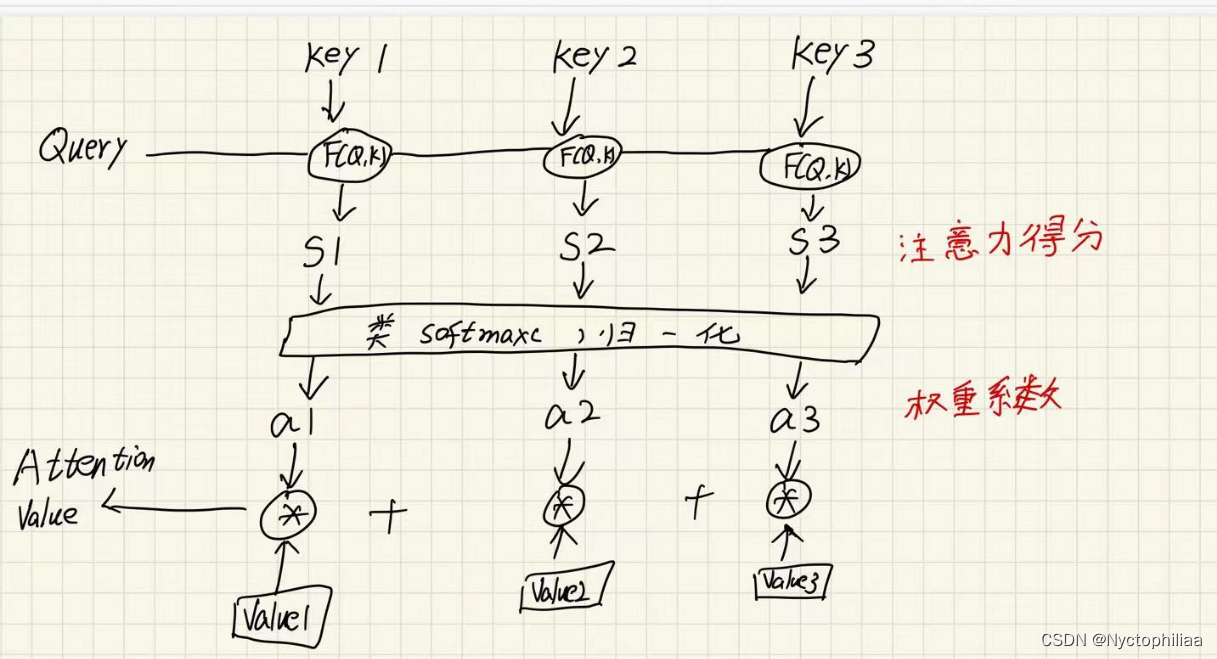 key 1 key 2 key 3
Query F(Q,K) F(Q,K) F(Q,K)
S1 S2 S3 注意力得分
类 softmax 归一化
a1 a2 a3 权重系数
Attention
Value * + * + *
Value1 Value2 Value3
CSDN @Nyctophiliaa